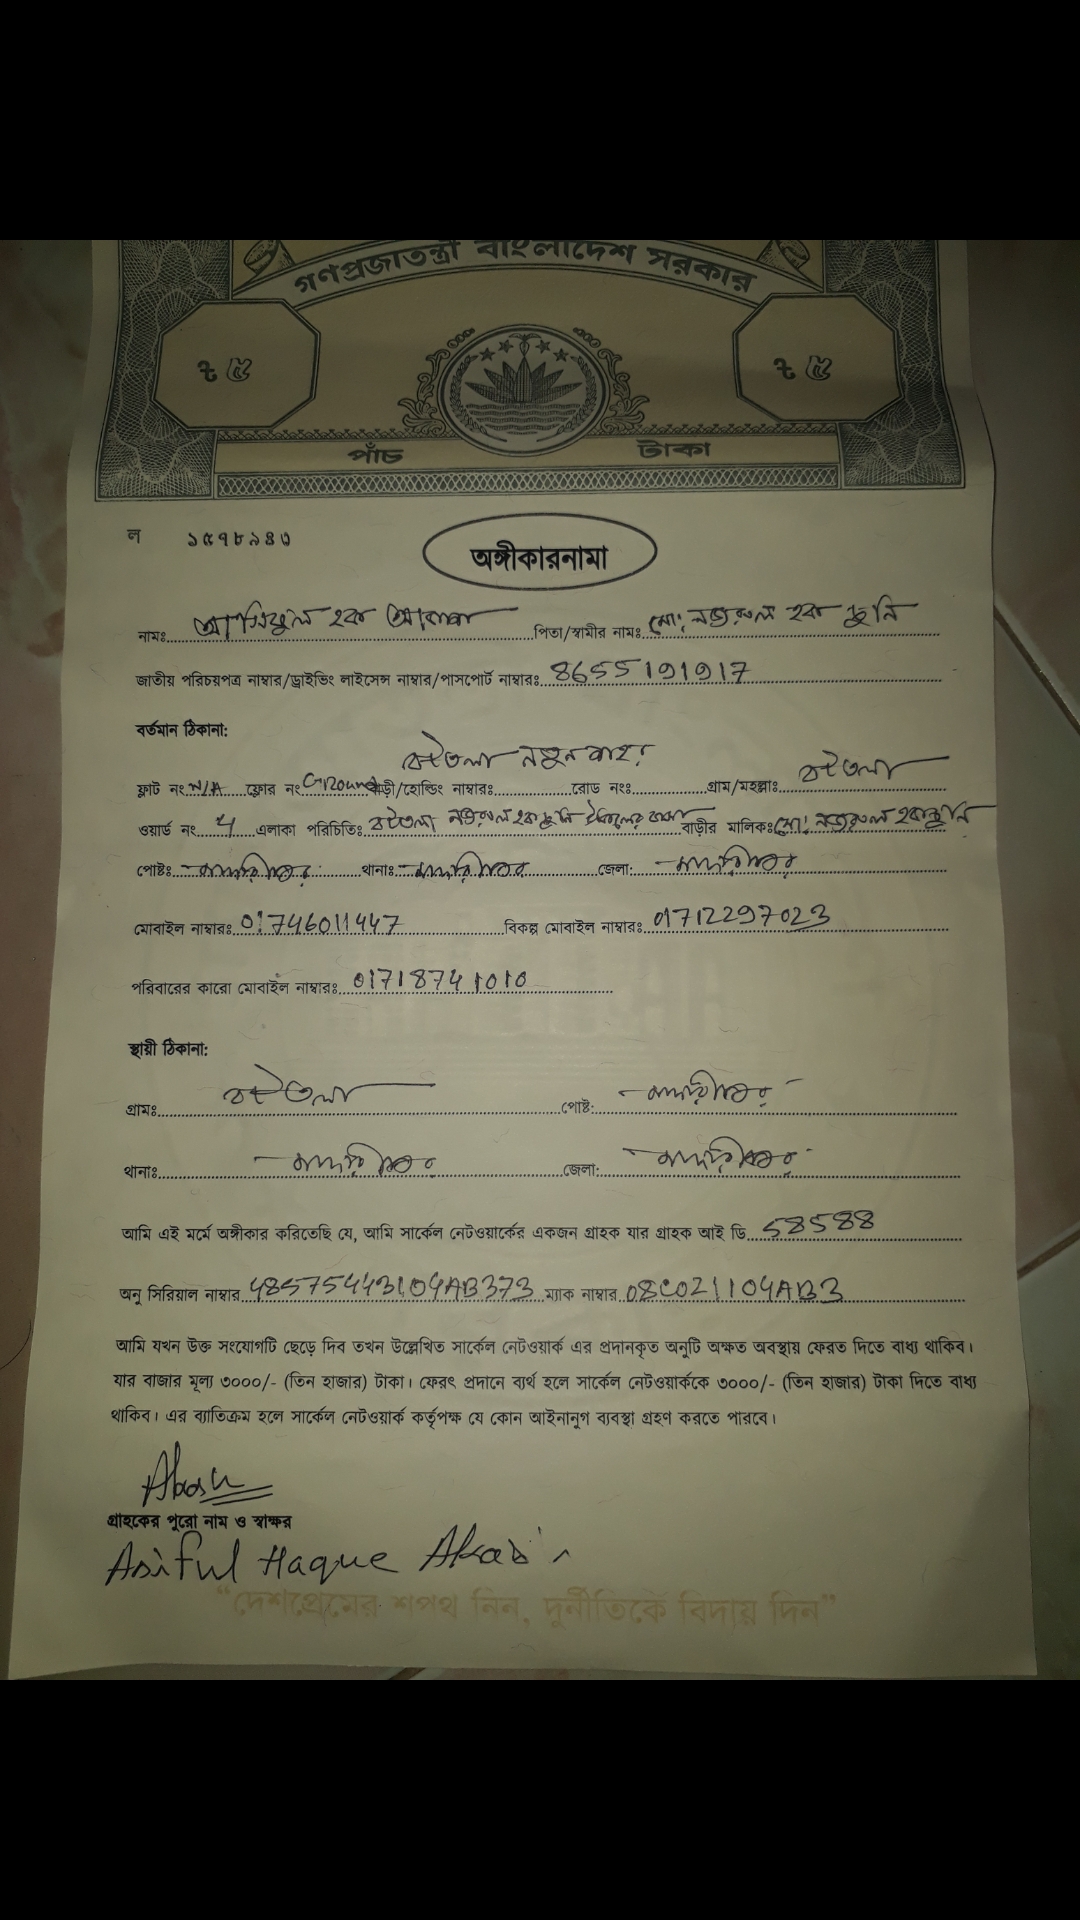 গণপ্রজাতন্ত্রী বাংলাদেশ সরকার
৳ ৫ ৳ ৫
পাঁচ টাকা
ল ১৫৭৮৯৪৩
অঙ্গীকারনামা
নামঃ আসিফুল হক আকাশ পিতা/স্বামীর নামঃ মো: নজরুল হক মুন্সি
জাতীয় পরিচয়পত্র নাম্বার/ড্রাইভিং লাইসেন্স নাম্বার/পাসপোর্ট নাম্বারঃ 8655191917
বর্তমান ঠিকানা:
বটতলা নতুন
ফ্লাট নং N/A ফ্লোর নং Ground বাড়ী/হোল্ডিং নাম্বারঃ রোড নংঃ গ্রাম/মহল্লাঃ বটতলা
ওয়ার্ড নং 4 এলাকা পরিচিতিঃ বটতলা নজরুল হক বাড়ীর মালিকঃ মো: নজরুল হক
পোষ্টঃ মাদারীপুর থানাঃ মাদারীপুর জেলা: মাদারীপুর
মোবাইল নাম্বারঃ 01746011447 বিকল্প মোবাইল নাম্বারঃ 01712297023
পরিবারের কারো মোবাইল নাম্বারঃ 01718741010
স্থায়ী ঠিকানা:
গ্রামঃ বটতলা পোষ্ট: মাদারীপুর
থানাঃ মাদারীপুর জেলা: মাদারীপুর
আমি এই মর্মে অঙ্গীকার করিতেছি যে, আমি সার্কেল নেটওয়ার্কের একজন গ্রাহক যার গ্রাহক আই ডি 58588
অনু সিরিয়াল নাম্বার 48575443104AB373 ম্যাক নাম্বার 08C021104AB3
আমি যখন উক্ত সংযোগটি ছেড়ে দিব তখন উল্লেখিত সার্কেল নেটওয়ার্ক এর প্রদানকৃত অনুটি অক্ষত অবস্থায় ফেরত দিতে বাধ্য থাকিব।
যার বাজার মূল্য ৩০০০/- (তিন হাজার) টাকা। ফেরৎ প্রদানে ব্যর্থ হলে সার্কেল নেটওয়ার্ককে ৩০০০/- (তিন হাজার) টাকা দিতে বাধ্য
থাকিব। এর ব্যাতিক্রম হলে সার্কেল নেটওয়ার্ক কর্তৃপক্ষ যে কোন আইনানুগ ব্যবস্থা গ্রহণ করতে পারবে।
Akash
গ্রাহকের পুরো নাম ও স্বাক্ষর
Asiful Haque Akash
“দেশপ্রেমের শপথ নিন, দুর্নীতিকে বিদায় দিন”